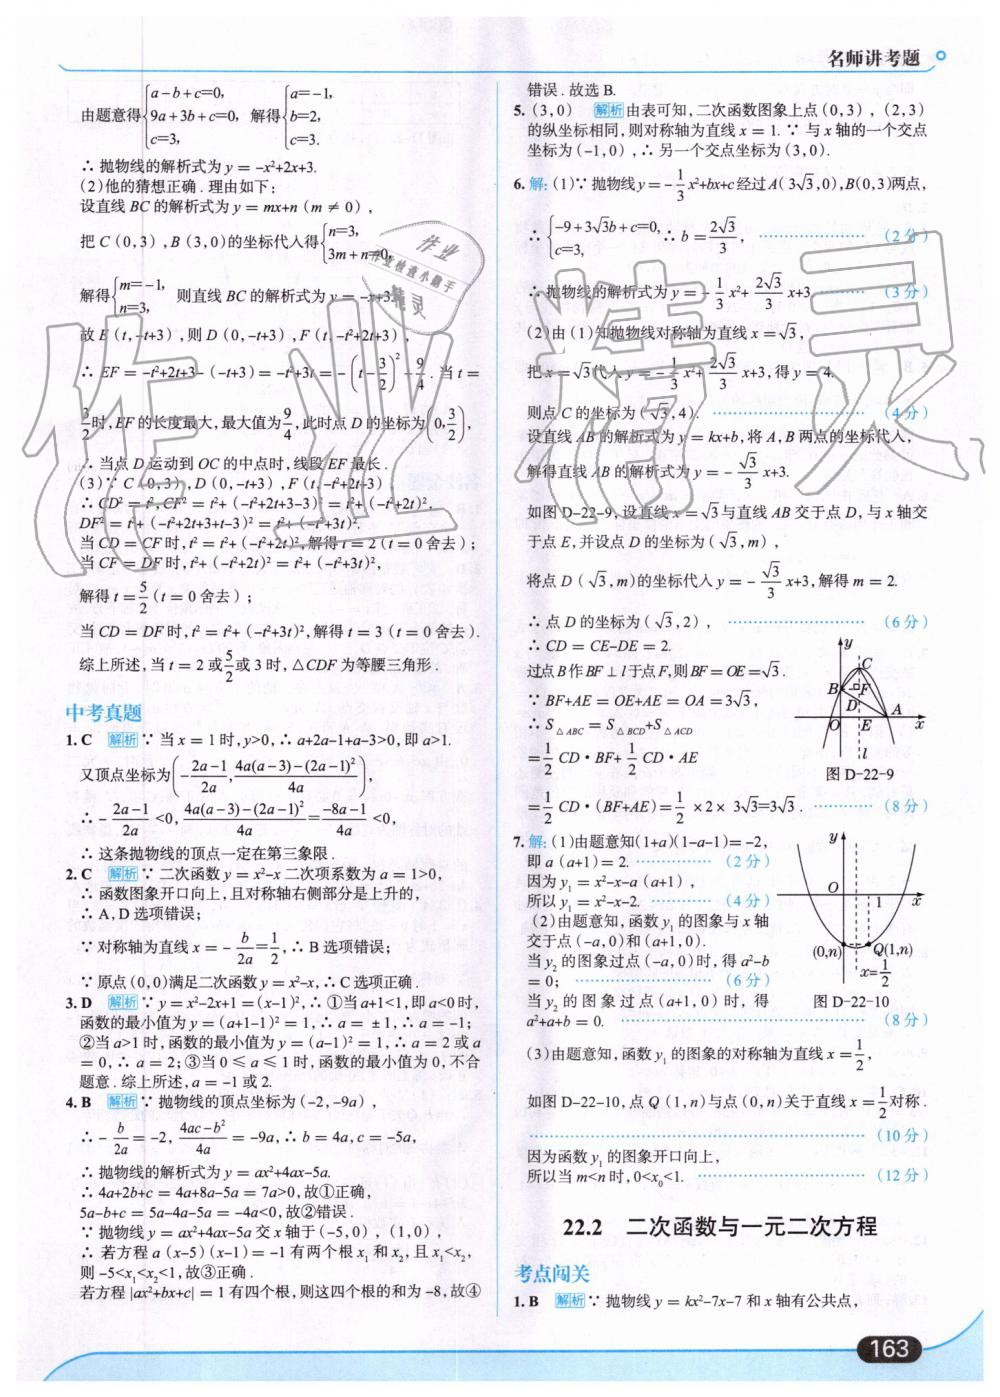 名师讲考题
由题意得{a-b+c=0, 9a+3b+c=0, c=3, 解得{a=-1, b=2, c=3.
∴ 抛物线的解析式为 y = -x²+2x+3.
(2)他的猜想正确. 理由如下:
设直线 BC 的解析式为 y = mx+n (m ≠ 0),
把 C (0,3), B (3,0)的坐标代入得{n=3, 3m+n=0,
解得{m=-1, n=3, 则直线 BC 的解析式为 y = -x+3.
故 E (t,-t+3), 则 D (0,-t+3), F (t,-t²+2t+3),
∴ EF = -t²+2t+3-(-t+3) = -t²+3t = -(t-3/2)²+9/4. 当 t =
3/2时, EF 的长度最大, 最大值为9/4, 此时点 D 的坐标为(0,3/2),
∴ 当点 D 运动到 OC 的中点时, 线段 EF 最长.
(3)∵ C (0,3), D (0,-t+3), F (t,-t²+2t+3),
∴ CD² = t², CF² = t²+(-t²+2t+3-3)² = t²+(-t²+2t)²,
DF² = t²+(-t²+2t+3+t-3)² = t²+(-t²+3t)².
当 CD = CF 时, t² = t²+(-t²+2t)², 解得 t = 2 (t = 0 舍去);
当 CF = DF 时, t²+(-t²+2t)² = t²+(-t²+3t)²,
解得 t = 5/2 (t = 0 舍去);
当 CD = DF 时, t² = t²+(-t²+3t)², 解得 t = 3 (t = 0 舍去).
综上所述, 当 t = 2 或5/2或 3 时, △CDF 为等腰三角形.
中考真题
1. C 解析 ∵ 当 x = 1 时, y>0, ∴ a+2a-1+a-3>0, 即 a>1.
又顶点坐标为(-(2a-1)/2a, (4a(a-3)-(2a-1)²)/4a),
∴ -(2a-1)/2a <0, (4a(a-3)-(2a-1)²)/4a = (-8a-1)/4a <0,
∴ 这条抛物线的顶点一定在第三象限.
2. C 解析 ∵ 二次函数 y = x²-x 二次项系数为 a = 1>0,
∴ 函数图象开口向上, 且对称轴右侧部分是上升的,
∴ A, D 选项错误;
∵ 对称轴为直线 x = -b/2a = 1/2, ∴ B 选项错误;
∵ 原点 (0,0)满足二次函数 y = x²-x, ∴ C 选项正确.
3. D 解析 ∵ y = x²-2x+1 = (x-1)², ∴ ①当 a+1<1, 即 a<0 时,
函数的最小值为 y = (a+1-1)² = 1, ∴ a = ±1, ∴ a = -1;
②当 a>1 时, 函数的最小值为 y = (a-1)² = 1, ∴ a = 2 或 a
= 0, ∴ a = 2; ③当 0 ≤ a ≤ 1 时, 函数的最小值为 0, 不合
题意. 综上所述, a = -1 或 2.
4. B 解析 ∵ 抛物线的顶点坐标为 (-2,-9a),
∴ -b/2a = -2, (4ac-b²)/4a = -9a, ∴ b = 4a, c = -5a,
∴ 抛物线的解析式为 y = ax²+4ax-5a.
∴ 4a+2b+c = 4a+8a-5a = 7a>0, 故①正确,
5a-b+c = 5a-4a-5a = -4a<0, 故②错误.
∵ 抛物线 y = ax²+4ax-5a 交 x 轴于 (-5,0), (1,0),
∴ 若方程 a (x-5)(x-1) = -1 有两个根 x₁ 和 x₂, 且 x₁<x₂,
则 -5<x₁<x₂<1, 故③正确.
若方程 |ax²+bx+c| = 1 有四个根, 则这四个根的和为 -8, 故④
错误. 故选 B.
5. (3,0) 解析 由表可知, 二次函数图象上点 (0,3), (2,3)
的纵坐标相同, 则对称轴为直线 x = 1. ∵ 与 x 轴的一个交点
坐标为 (-1,0), ∴ 另一个交点坐标为 (3,0).
6. 解: (1)∵ 抛物线 y = -1/3x²+bx+c 经过 A(3√3,0), B(0,3)两点,
∴ {-9+3√3b+c=0, c=3, ∴ b = 2√3/3, (2分)
∴ 抛物线的解析式为 y = -1/3x²+2√3/3x+3. (3分)
(2)由 (1)知抛物线对称轴为直线 x = √3,
把 x = √3代入 y = -1/3x²+2√3/3x+3, 得 y = 4.
则点 C 的坐标为 (√3,4). (4分)
设直线 AB 的解析式为 y = kx+b, 将 A, B 两点的坐标代入,
解得直线 AB 的解析式为 y = -√3/3x+3.
如图 D-22-9, 设直线 x = √3 与直线 AB 交于点 D, 与 x 轴交
于点 E, 并设点 D 的坐标为 (√3,m),
将点 D (√3,m)的坐标代入 y = -√3/3x+3, 解得 m = 2.
∴ 点 D 的坐标为 (√3,2), (6分)
∴ CD = CE-DE = 2.
过点 B 作 BF ⊥ l 于点 F, 则 BF = OE = √3.
∵ BF+AE = OE+AE = OA = 3√3,
∴ S△ABC = S△BCD+S△ACD
= 1/2 CD·BF+1/2 CD·AE
= 1/2 CD·(BF+AE) = 1/2 ×2× 3√3=3√3. (8分)
y
C
B
F
D
O
E
A
x
l
图 D-22-9
7. 解: (1)由题意知(1+a)(1-a-1)= -2,
即 a (a+1) = 2. (2分)
因为 y₁ = x²-x-a (a+1),
所以 y₁ = x²-x-2. (4分)
(2)由题意知, 函数 y₁ 的图象与 x 轴
交于点 (-a,0)和 (a+1,0).
当 y₂ 的图象过点 (-a,0)时, 得 a²-b
= 0; (6分)
当 y₂ 的图象过点 (a+1,0)时, 得
a²+a+b = 0. (8分)
y
O
1
x
(0,n)
Q(1,n)
x=1/2
图 D-22-10
(3)由题意知, 函数 y₁ 的图象的对称轴为直线 x = 1/2,
如图 D-22-10, 点 Q (1,n)与点 (0,n)关于直线 x = 1/2 对称.
(10分)
因为函数 y₁ 的图象开口向上,
所以当 m<n 时, 0<x₀<1. (12分)
22.2 二次函数与一元二次方程
考点闯关
1. B 解析 ∵ 抛物线 y = kx²-7x-7 和 x 轴有公共点,
163
作业精灵
作业
作业检查小助手
精灵